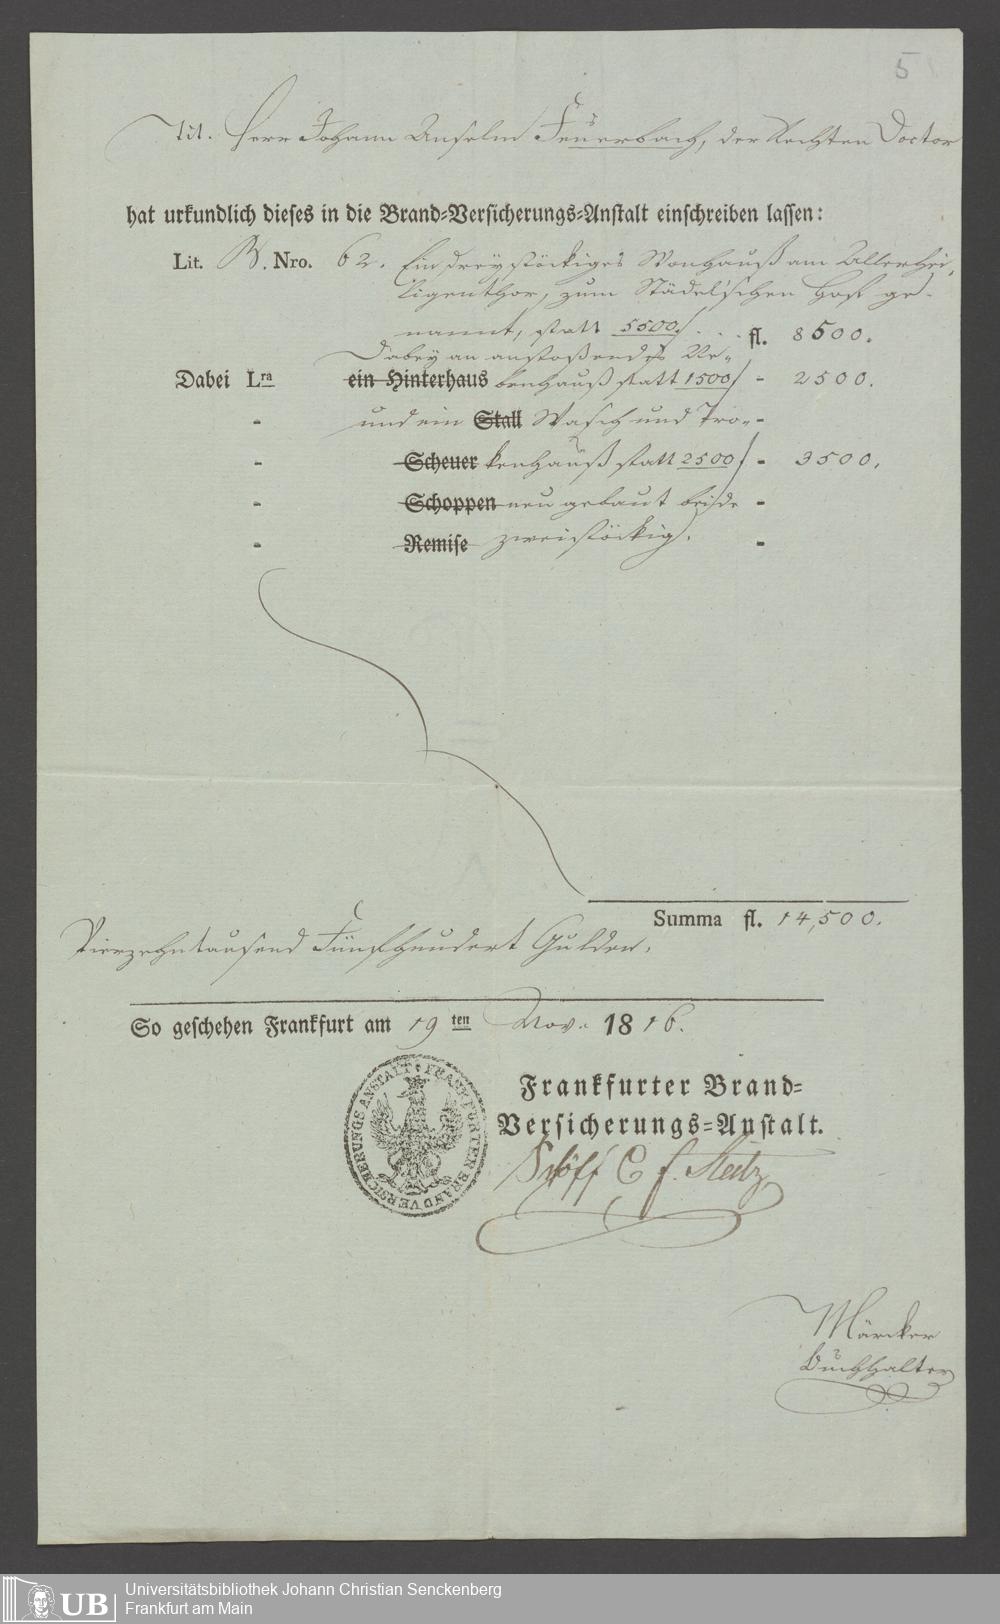 5
Tit. Herr Johann Anselm Feuerbach, der Rechten Doctor
hat urkundlich dieses in die Brand-Versicherungs-Anstalt einschreiben lassen:
Lit. Nro. 62. Ein dreystöckiges Wonhauß am Allerhei-
ligenthor, zum Städelschen Hof ge-
nannt, statt 5500/. . . fl. 8500.
Dabey an anstoßendes Ne-
Dabei Lra ein Hinterhaus benhauß statt 1500/ - 2500.
- und ein Stall Wasch und Tro- -
- Scheuer kenhauß statt 2500/ - 3500.
- Schoppen neu gebaut beide -
- Remise zweistöckig. -
Summa fl. 14,500.
Vierzehntausend Fünfhundert Gulden.
So geschehen Frankfurt am 19 ten Nov. 1816.
FRANKFURTER BRAND VERSICHERUNGS ANSTALT
Frankfurter Brand-
Versicherungs-Anstalt.
Schöff C. F. Steitz
Märcker
Buchhalter
UB
Universitätsbibliothek Johann Christian Senckenberg
Frankfurt am Main